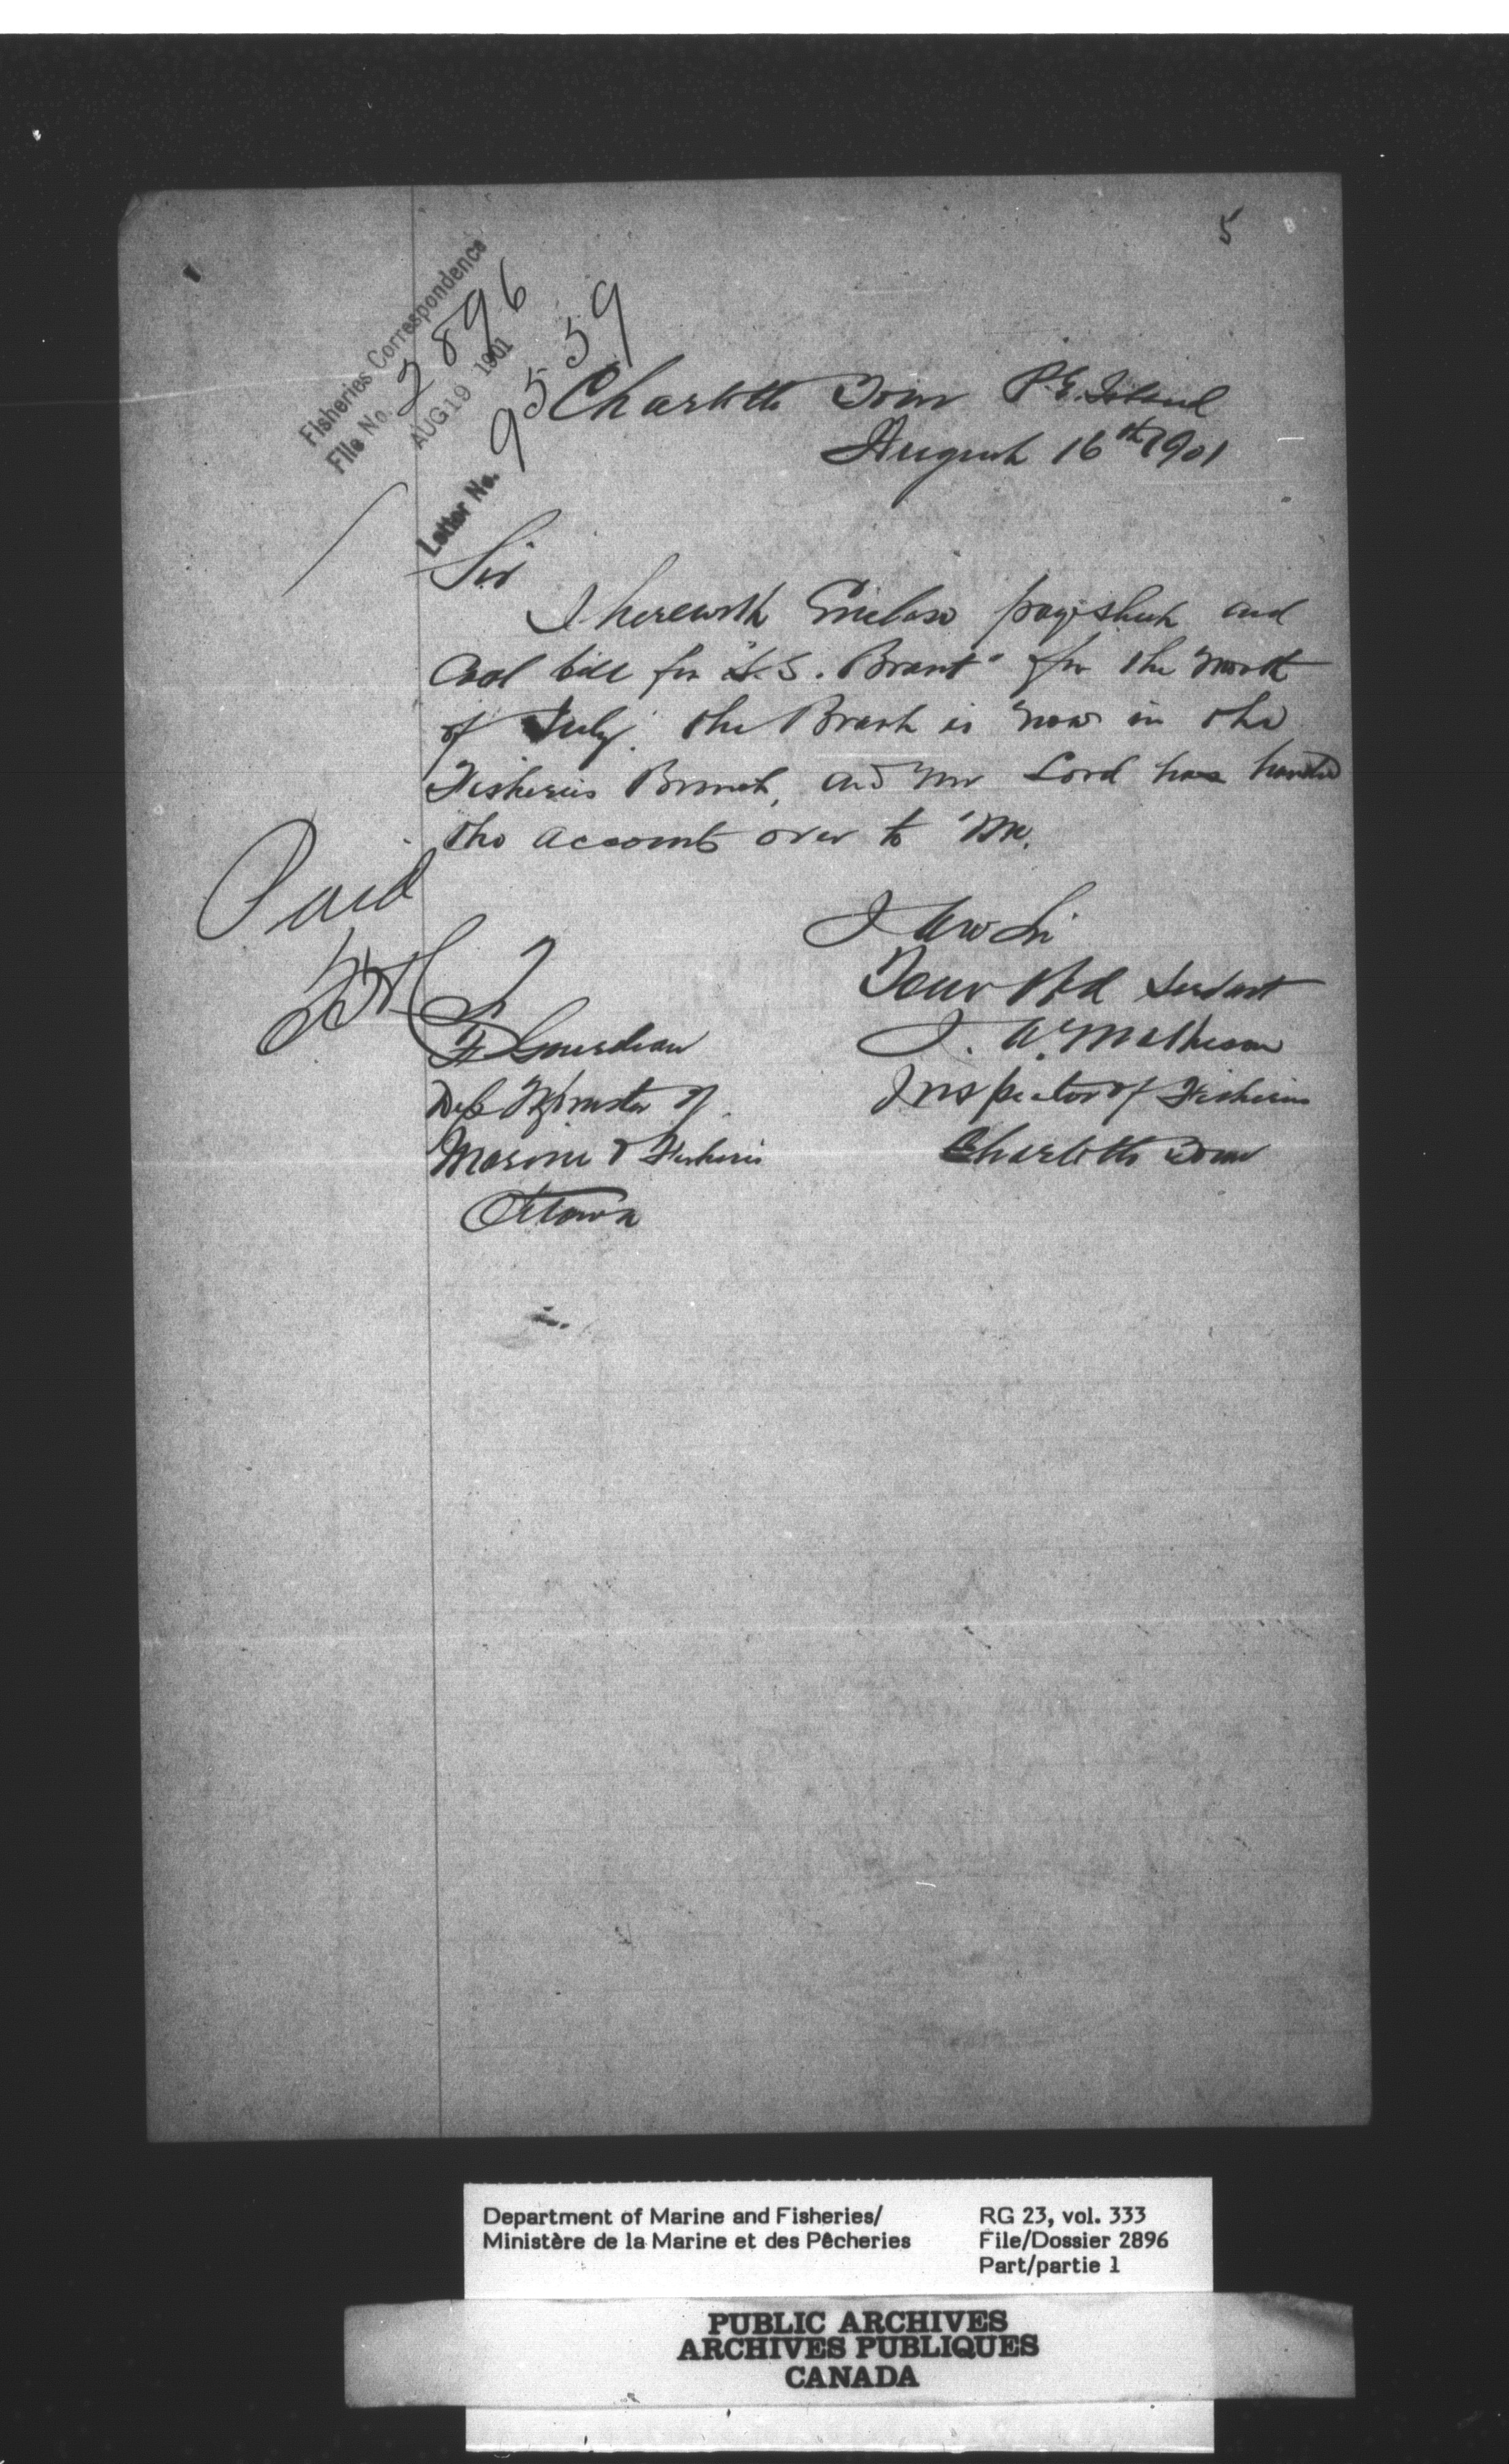 5
Fisheries Correspondence
File No. 2896
AUG 19 1901
Letter No. 9559
Charlotte Town P.E. Island
August 16th 1901
Sir
I herewith Enclose pay sheet and
Coal bill for "S.S. Brant" for the month
of July. the Brant is now in the
Fisheries Branch, and Mr Lord has handed
the accounts over to me.
Paid
I am Sir
Your Obd Servant
J. A. Matheson
Inspector of Fisheries
Charlotte Town
F Gourdeau
Dep Minister of
Marine & Fisheries
Ottawa
Department of Marine and Fisheries/
Ministère de la Marine et des Pêcheries
RG 23, vol. 333
File/Dossier 2896
Part/partie 1
PUBLIC ARCHIVES
ARCHIVES PUBLIQUES
CANADA